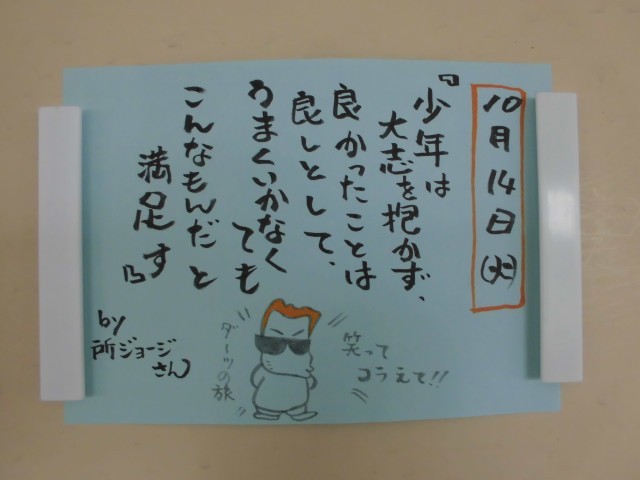 10月14日(火)
『少年は
大志を抱かず、
良かったことは
良しとして、
うまくいかなく
ても
こんなもんだと
満足す』
by
所ジョージ
さん
ダーツの旅
笑って
コラえて!!